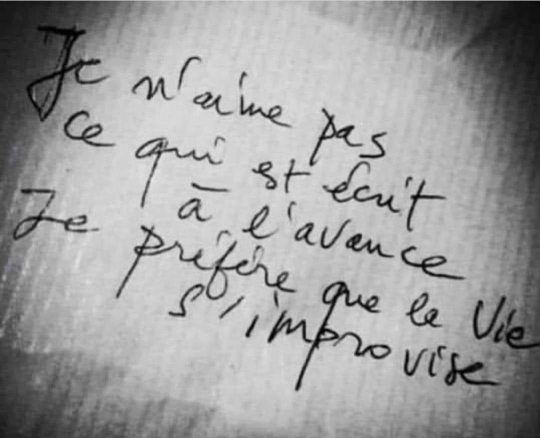 Je n'aime pas
ce qui est écrit
à l'avance
Je préfère que la Vie
s'improvise